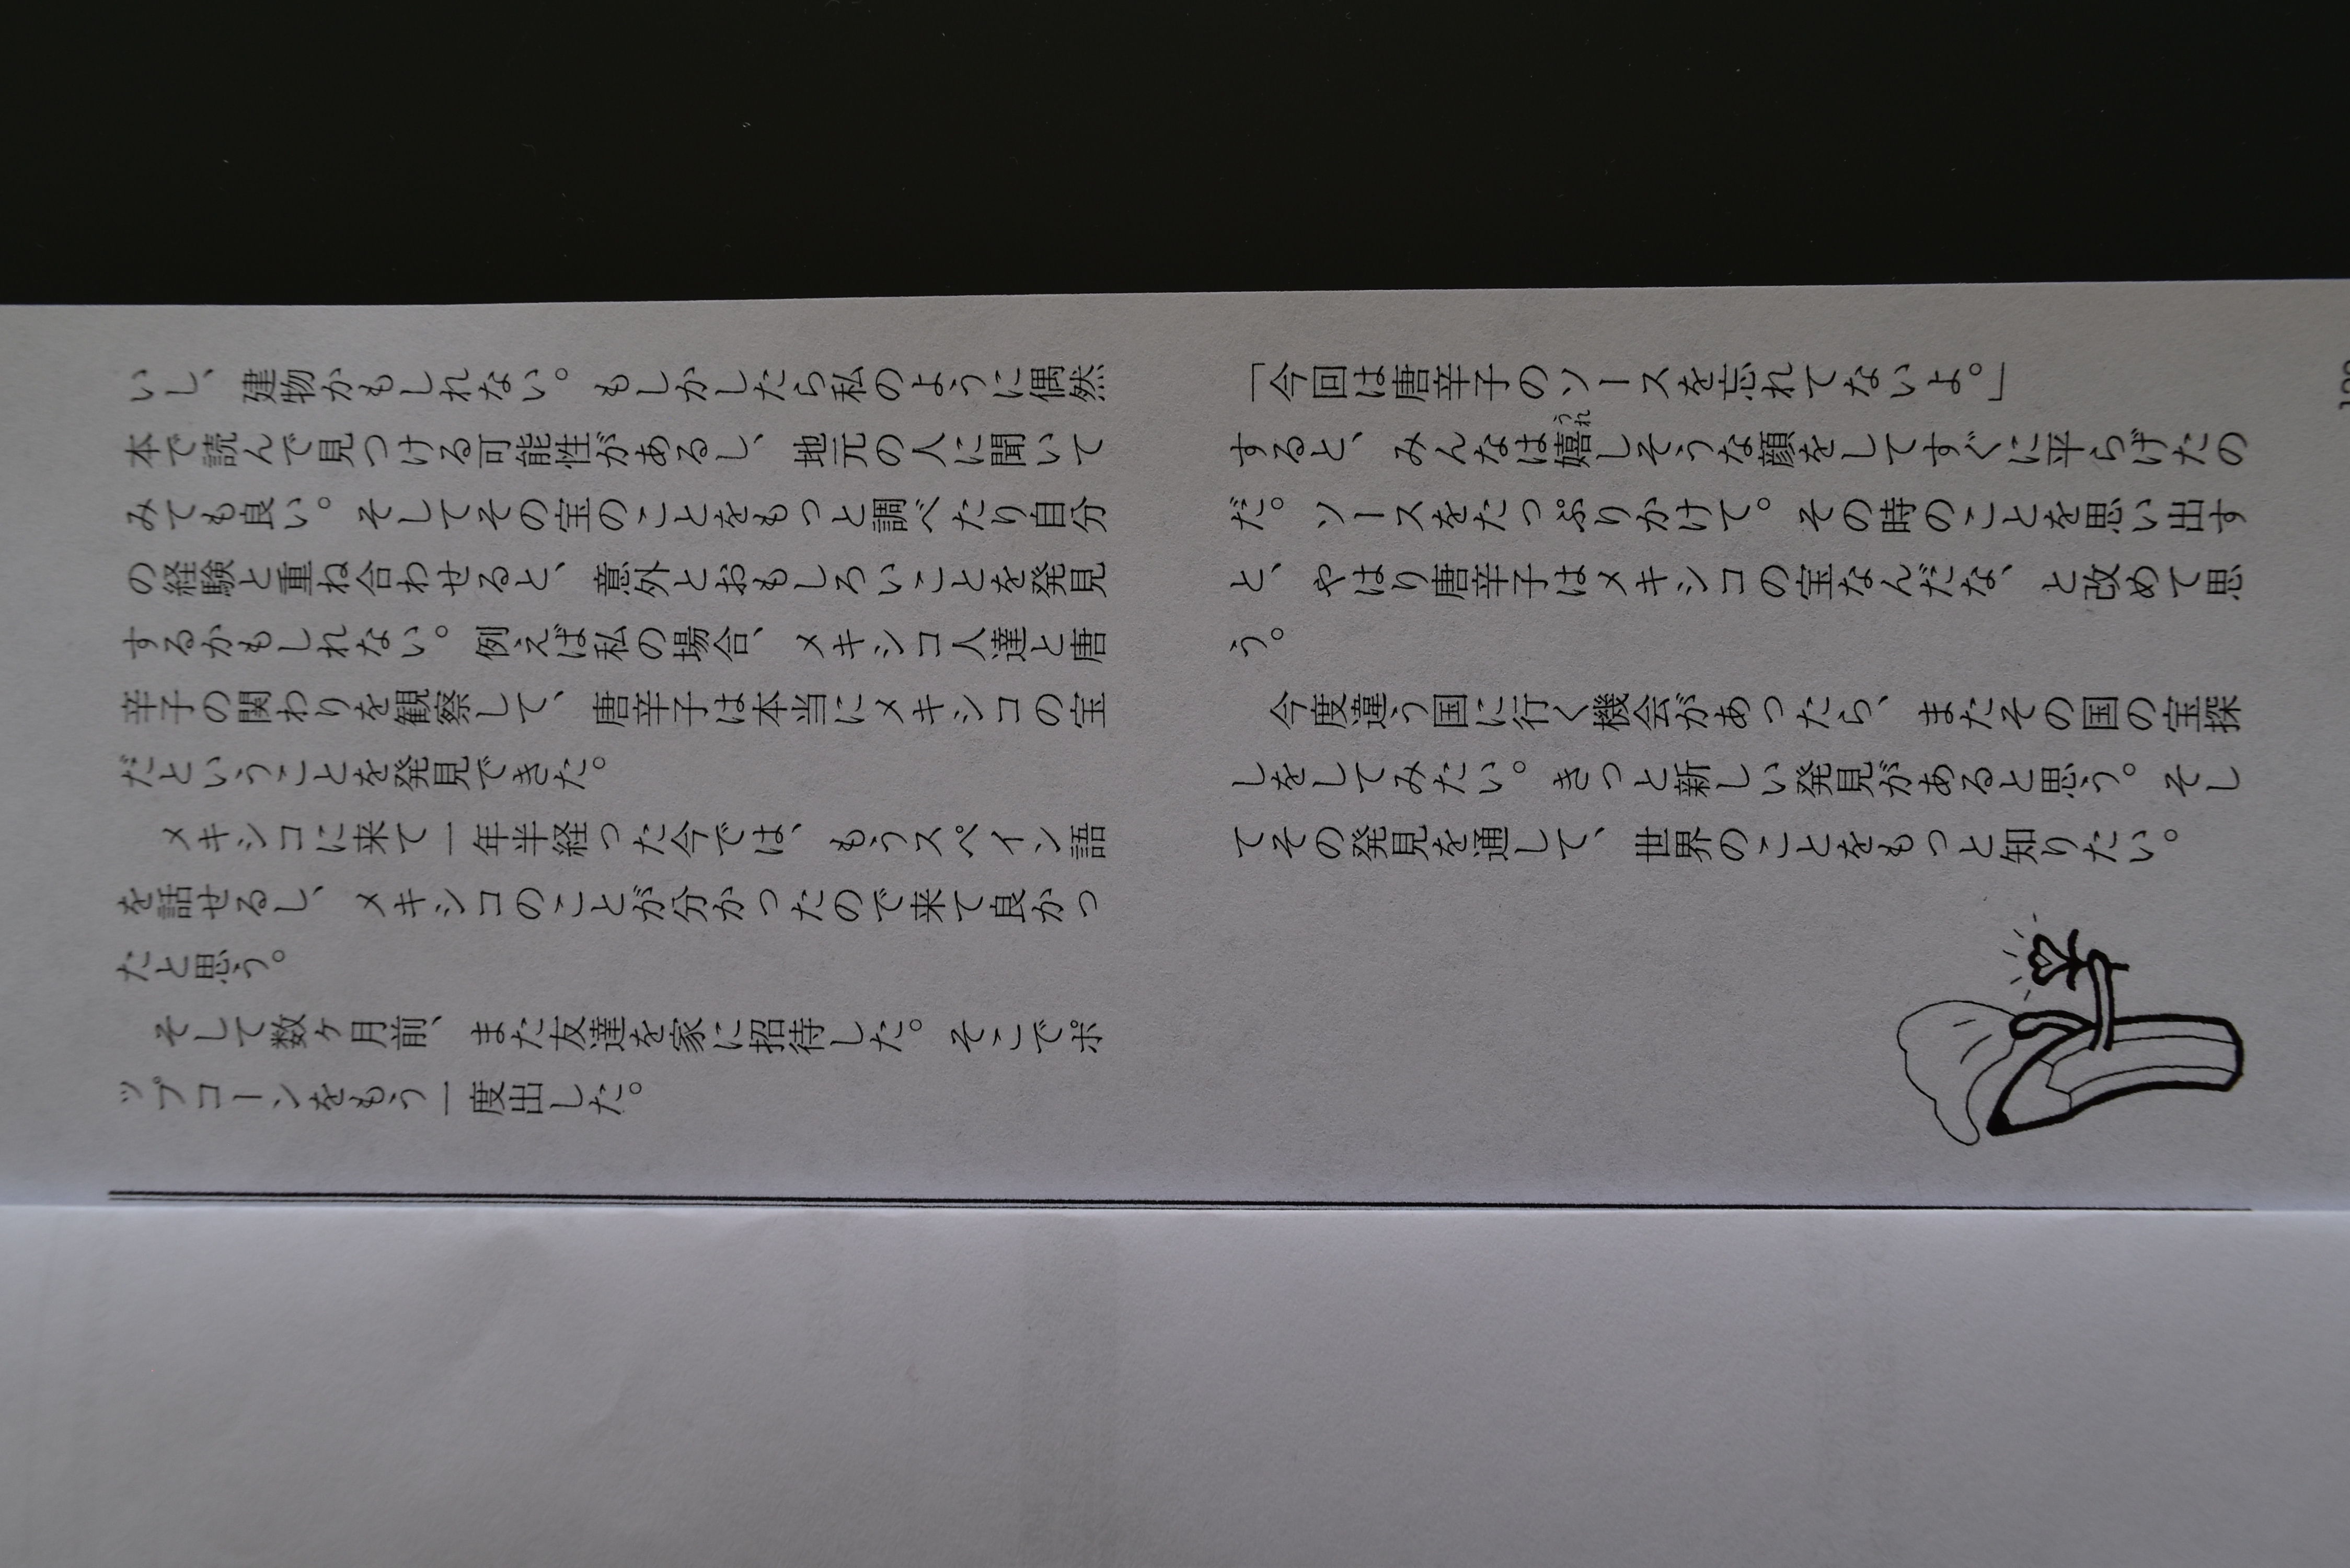 いし、建物かもしれない。もしかしたら私のように偶然
本で読んで見つける可能性があるし、地元の人に聞いて
みても良い。そしてその宝のことをもっと調べたり自分
の経験と重ね合わせると、意外とおもしろいことを発見
するかもしれない。例えば私の場合、メキシコ人達と唐
辛子の関わりを観察して、唐辛子は本当にメキシコの宝
だということを発見できた。
メキシコに来て一年半経った今では、もうスペイン語
を話せるし、メキシコのことが分かったので来て良かっ
たと思う。
そして数ヶ月前、また友達を家に招待した。そこでポ
ップコーンをもう一度出した。
「今回は唐辛子のソースを忘れてないよ。」
すると、みんなは嬉しそうな顔をしてすぐに平らげたの
うれ
だ。ソースをたっぷりかけて。その時のことを思い出す
と、やはり唐辛子はメキシコの宝なんだな、と改めて思
う。
今度違う国に行く機会があったら、またその国の宝探
しをしてみたい。きっと新しい発見があると思う。そし
てその発見を通して、世界のことをもっと知りたい。